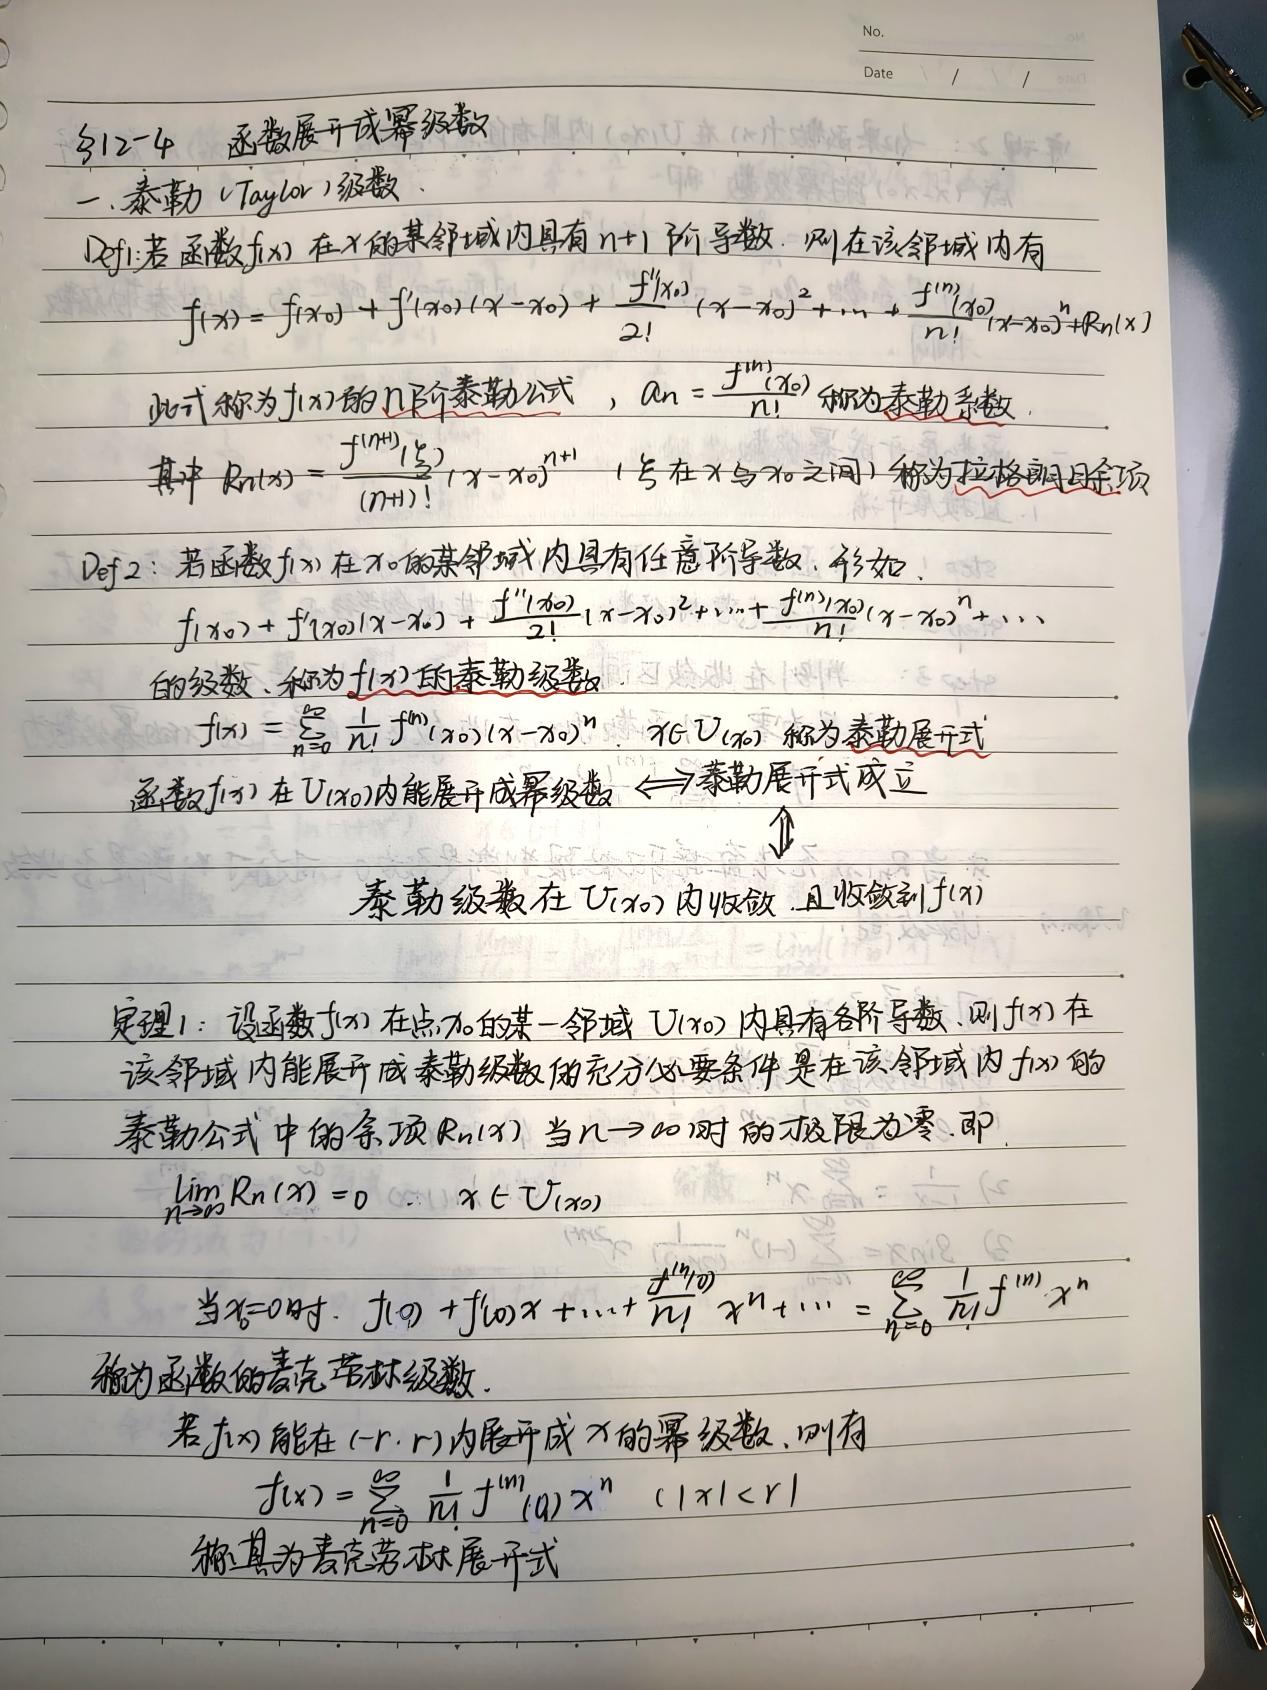 No.
Date / /
§12-4 函数展开成幂级数
一.泰勒(Taylor)级数.
Def1:若函数f(x)在x的某邻域内具有n+1阶导数.则在该邻域内有
f(x)=f(x₀)+f'(x₀)(x-x₀)+\frac{f''(x₀)}{2!}(x-x₀)²+…+\frac{f^{(n)}(x₀)}{n!}(x-x₀)^n+Rn(x)
此式称为f(x)的n阶泰勒公式,an=\frac{f^{(n)}(x₀)}{n!}称为泰勒系数.
其中Rn(x)=\frac{f^{(n+1)}(ξ)}{(n+1)!}(x-x₀)^{n+1} (ξ在x与x₀之间)称为拉格朗日余项
Def2:若函数f(x)在x₀的某邻域内具有任意阶导数.形如.
f(x₀)+f'(x₀)(x-x₀)+\frac{f''(x₀)}{2!}(x-x₀)²+…+\frac{f^{(n)}(x₀)}{n!}(x-x₀)^n+…
的级数、称为f(x)的泰勒级数.
f(x)=\sum_{n=0}^{∞}\frac{1}{n!}f^{(n)}(x₀)(x-x₀)^n. x∈U(x₀) 称为泰勒展开式
函数f(x)在U(x₀)内能展开成幂级数⟺泰勒展开式成立
⇕
泰勒级数在U(x₀)内收敛.且收敛到f(x)
定理1:设函数f(x)在点x₀的某一邻域U(x₀)内具有各阶导数.则f(x)在
该邻域内能展开成泰勒级数的充分必要条件是在该邻域内f(x)的
泰勒公式中的余项Rn(x)当n→∞时的极限为零.即.
\lim_{n→∞}Rn(x)=0 x∈U(x₀)
当x₀=0时. f(0)+f'(0)x+…+\frac{f^{(n)}(0)}{n!}x^n+…=\sum_{n=0}^{∞}\frac{1}{n!}f^{(n)}·x^n
称为函数的麦克劳林级数.
若f(x)能在(-r.r)内展开成x的幂级数、则有
f(x)=\sum_{n=0}^{∞}\frac{1}{n!}f^{(n)}(0)x^n (|x|<r)
称其为麦克劳林展开式